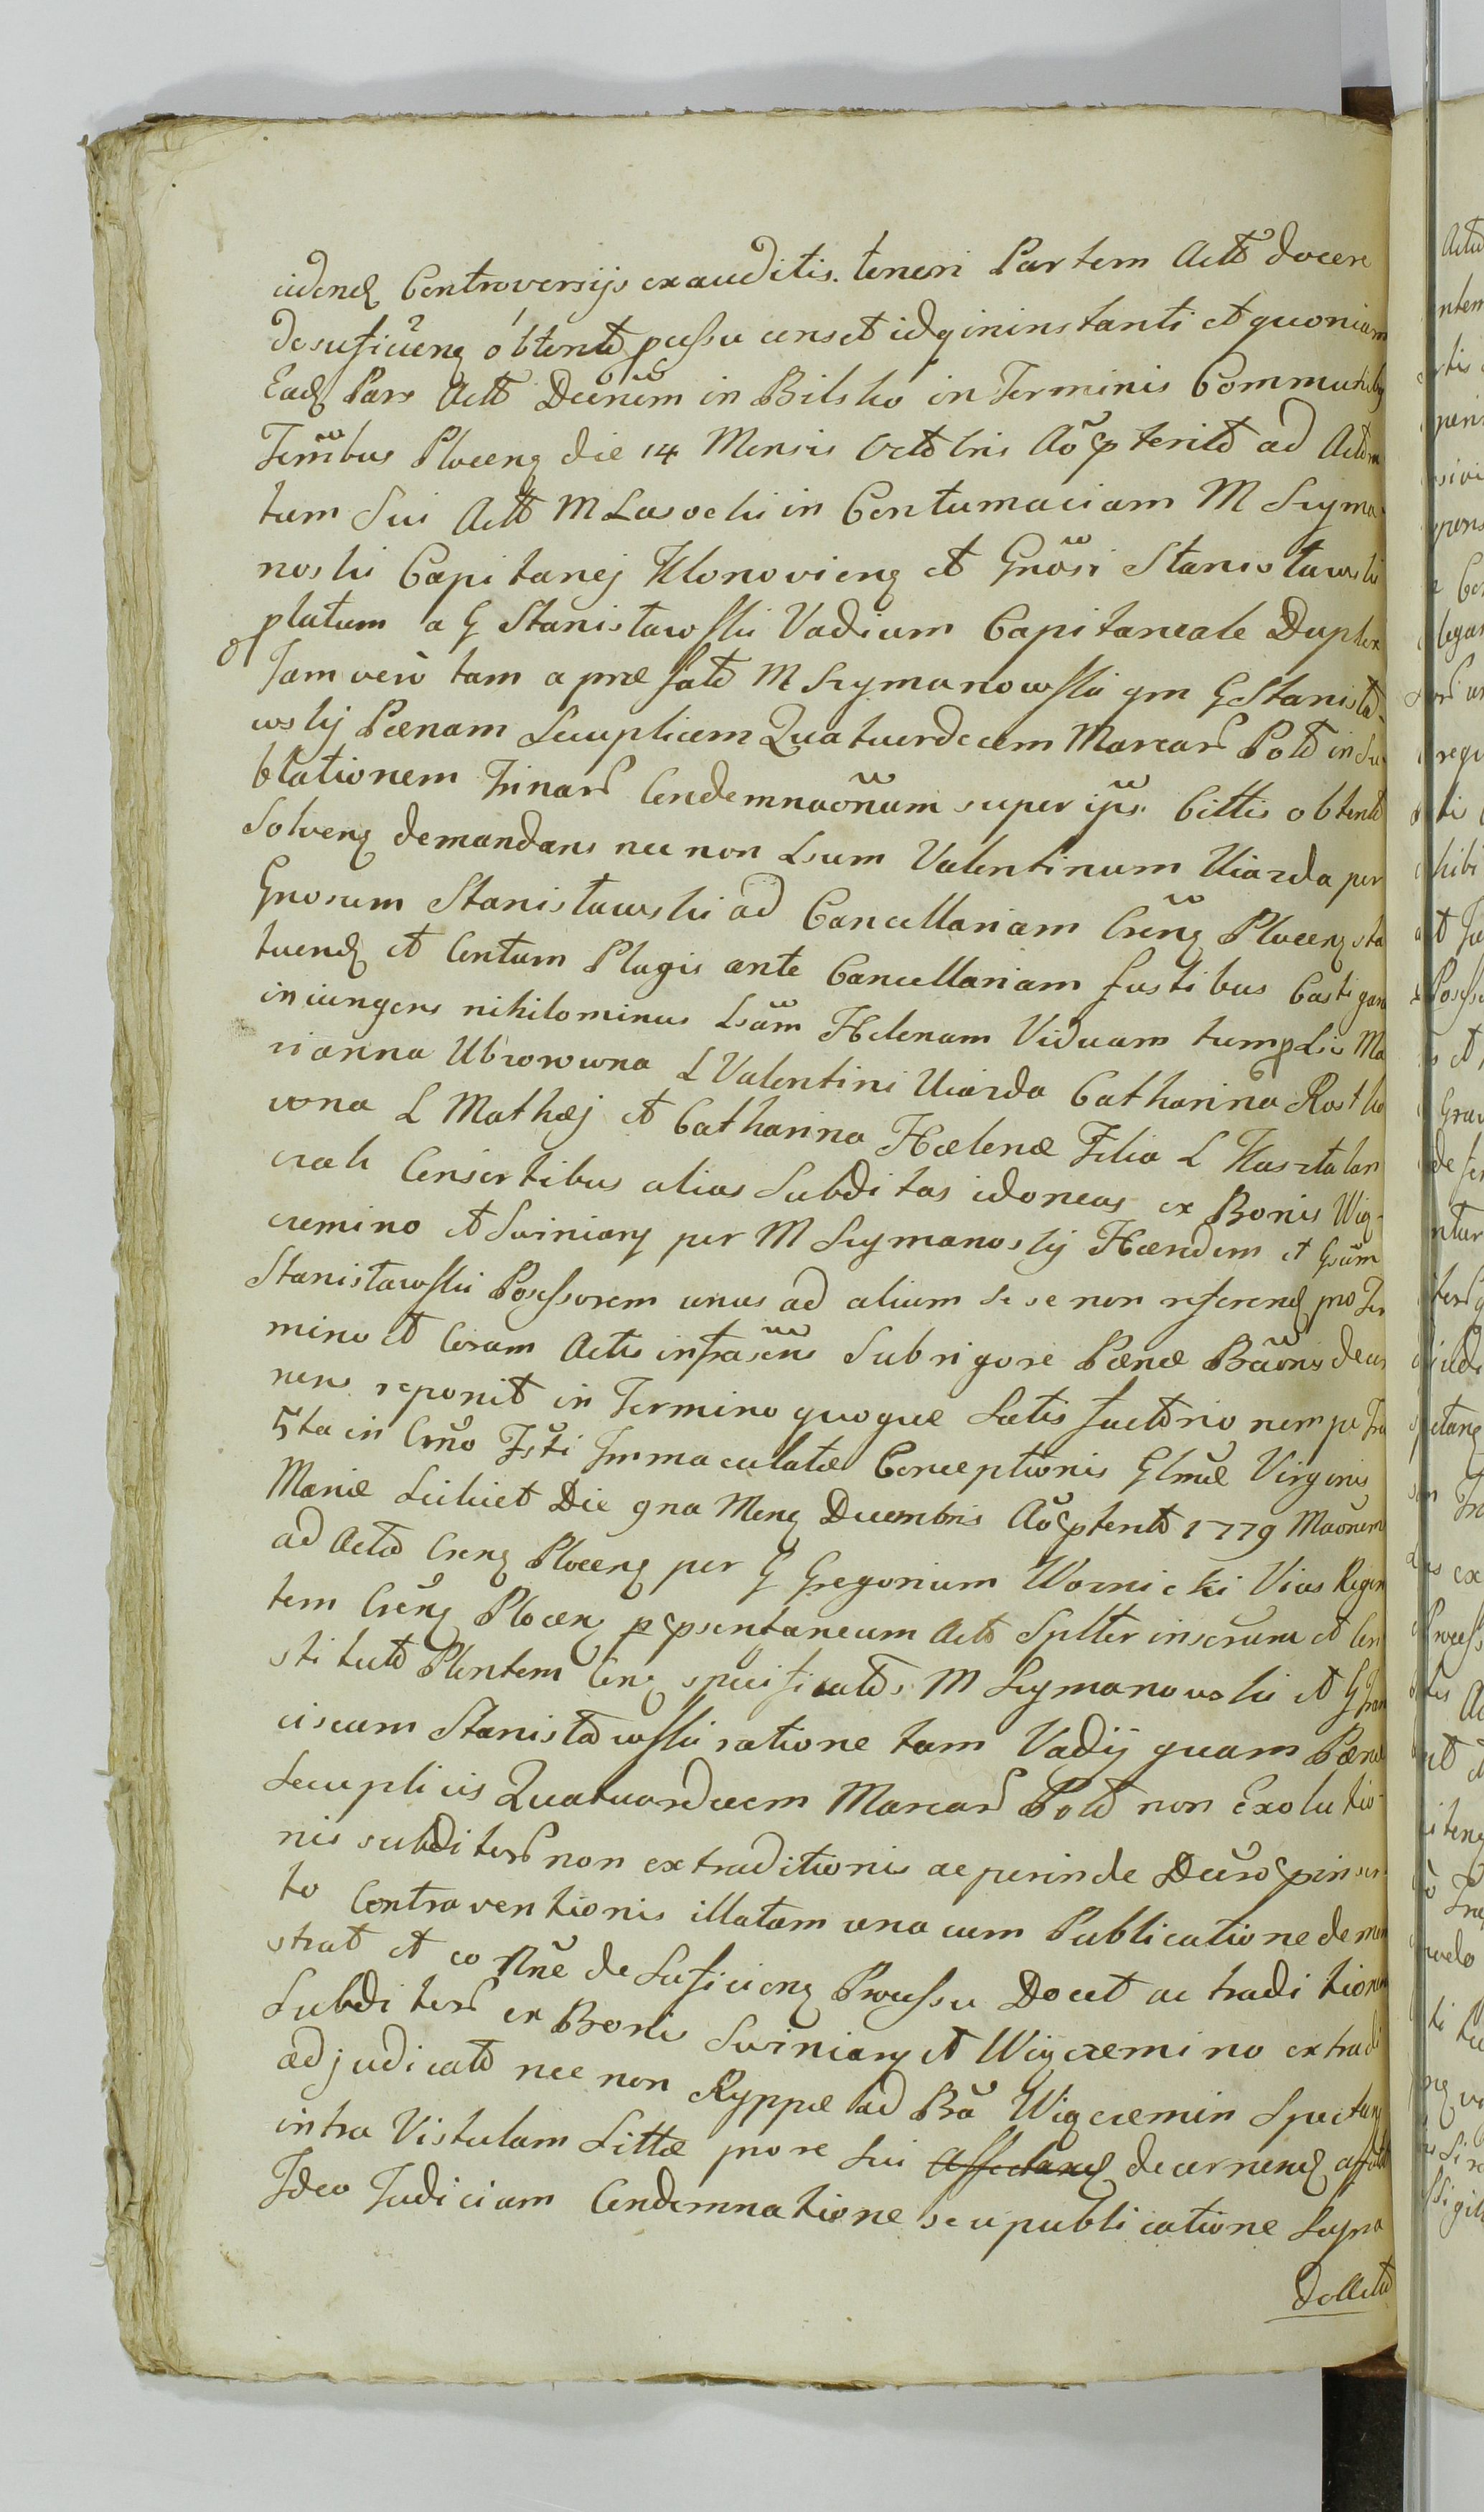 eidenq Controversijs exauditis. teneri Partem Actt docere
de suficienq obtentt pcessu censet idq in instanti et quoniam
Eadq Pars Actt Decrum in Bilsko in Terminis Communibq
Termbus Plocenq die 14 Mensis Octtbris Aō pteritt ad Actto
tum Sui Actt M Lasocki in Contumaciam M Szyma-
noski Capitanej Klonovienq et Gnosi Stanisławski
platum a G Stanisławski Vadium Capitaneale Duplex
Jam vero tam a præ fatt M Szymanowski qm G Stanisła-
wskij Pœnam Sexuplicem Quatuordecem Marcar Poltt in Su-
blationem Trinar Condemnaonum super ips Cittis obtentt
Solvenq demandans nec non Lsum Valentinum Uiazda per
Gnosum Stanisławski ad Cancellariam Crenq Plocenq sta
tuendq et Centum Plagis ante Cancellariam fustibus Castigan
iniungens nihilominus Lsam Helenam Viduam tump Lis Ma
rianna Ubrowna L Valentini Uiazda Catharina Rostko
wna L Mathæj et Catharina Hælenæ Filia L Kasztelan
czak Consortibus alias Subditas idoneas ex Bonis Wią-
czemino et Swiniary per M Szymanoskij Hæredem et Gsum
Stanisławski Posessorem unus ad alium se se non referendq pro Ter
mino et Coram Actis infrascens Sub rigore Pœnæ Baonis decer
nens reponit in Termino quoque Satis factorio nempe Fra
5ta in Crno Fsti Immaculatæ Conceptionis Glmæ Virginis
Mariæ Scilicet Die 9na Menq Decembris Aō ptentt 1779 Maonem
ad Actta Crenq Plocenq per G Gregorium Woznicki Vices Regen
tem Crenq Plocenq p psentaneum Actt Splter inserum et Con
stitutt Plentem Cenq specificatts M Szymanowski et G Fran
ciscum Stanisławski ratione tam Vadij quam Pœnæ
Sexuplicis Quatuordecem Marcar Poltt non Exolutio-
nis subditor non extraditionis ac perinde Decro pinser-
to Contraventionis illatam una cum Publicatione demon
strat et eo Nne de Suficienq Processu Docet ac traditionem
Subditor ex Bonis Swiniary et Wiączemino extradi
adjudicatt nec non Ryppæ ad Ba Wiączemin Spectanq
intra Vistulam Sittæ pro re sui decernendq affctt
Ideo Judicium Condemnatione seu publicatione Supra
dellatt